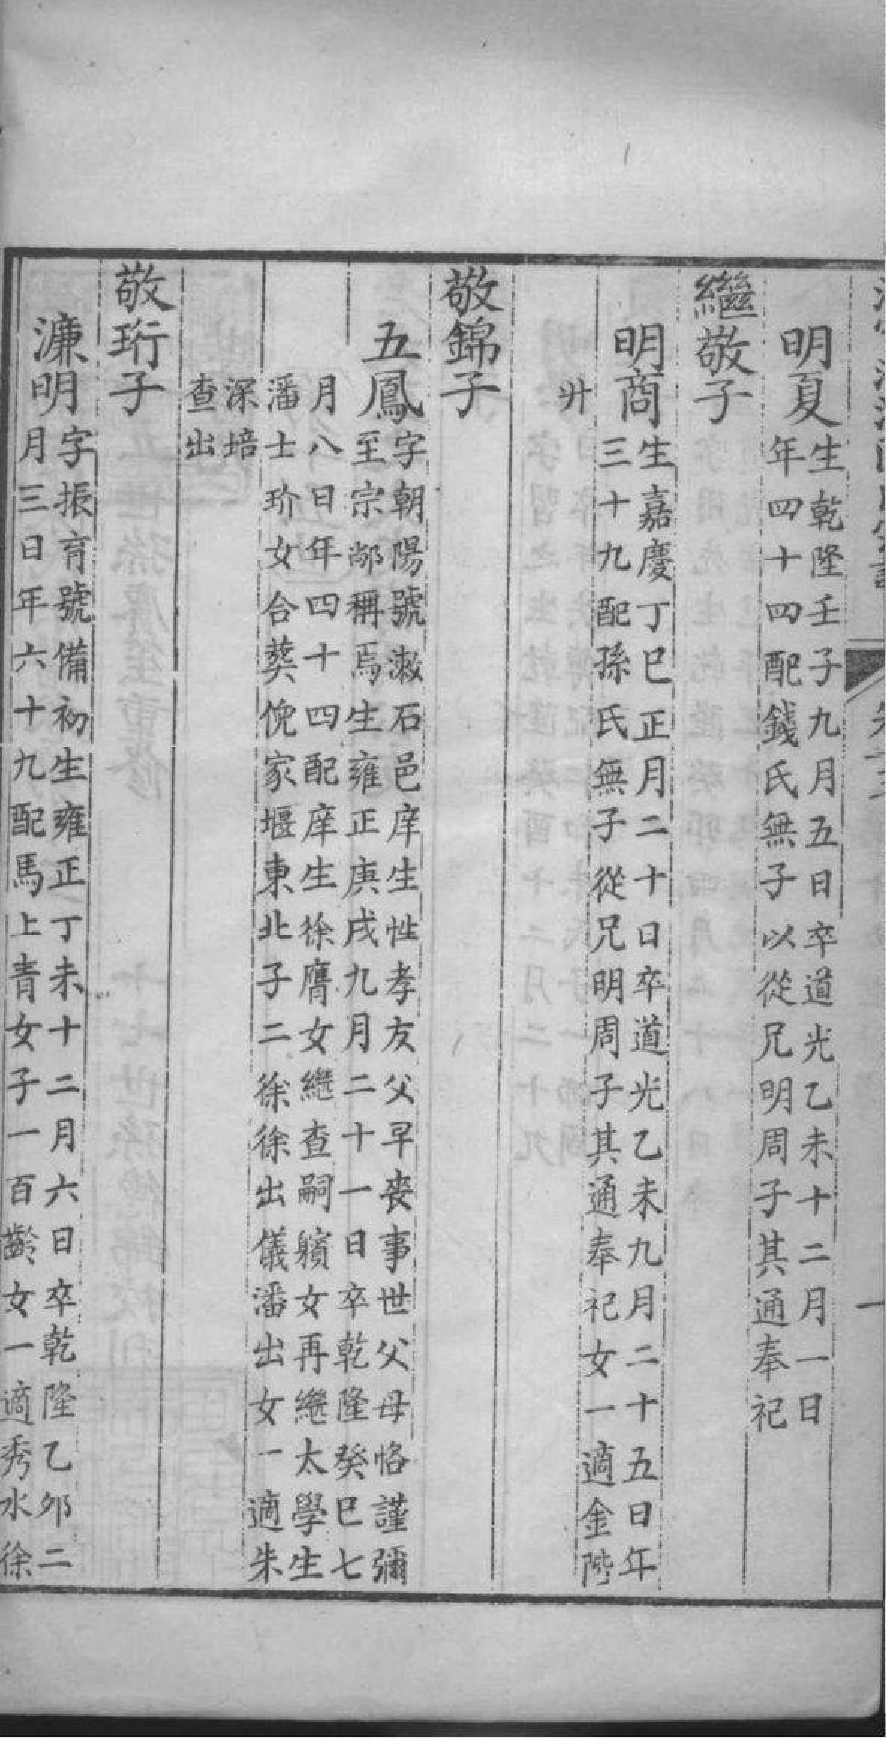 卷十三
一
明夏
生乾隆壬子九月五日卒道光乙未十二月一日
年四十四配錢氏無子以從兄明周子其通奉祀
繼敬子
明商
生嘉慶丁巳正月二十日卒道光乙未九月二十五日年
三十九配孫氏無子從兄明周子其通奉祀女一適金階
廾
敬錦子
五鳳
字朝陽號漱石邑庠生性孝友父早喪事世父母恪謹彌
至宗鄰稱焉生雍正庚戌九月二十一日卒乾隆癸巳七
月八日年四十四配庠生徐膺女繼查嗣鑌女再繼太學生
潘士玠女合葬俛家堰東北子二徐徐出儀潘出女一適朱
深培
查出
敬珩子
濂明
字振育號備初生雍正丁未十二月六日卒乾隆乙夘二
月三日年六十九配馬上青女子一百齡女一適秀水徐